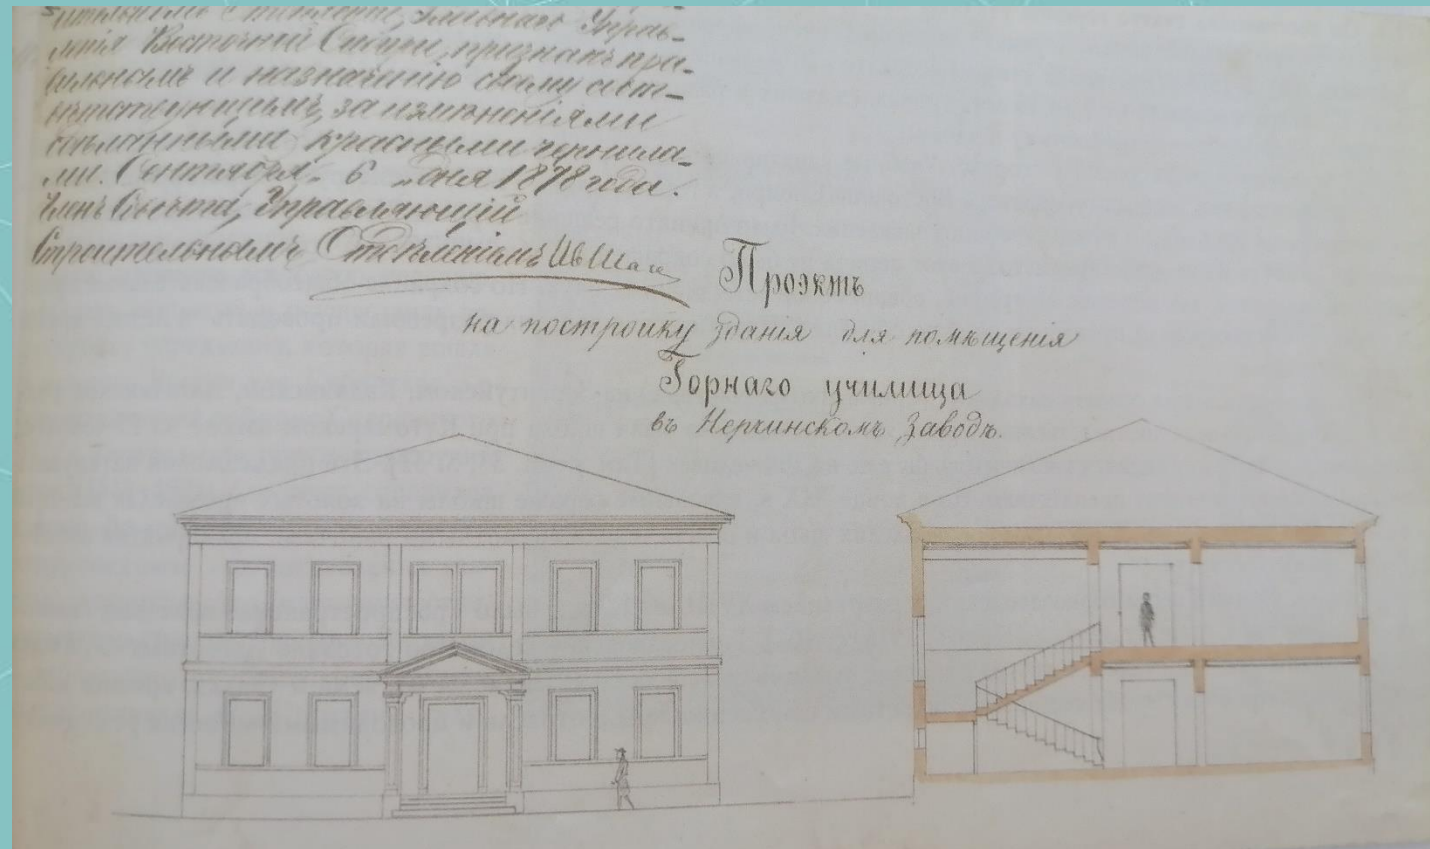 Строительнымъ Отдѣленіемъ Главнаго Управ-
ленія Восточной Сибири, признанъ пра-
вильнымъ и назначенію своему соот-
вѣтствующимъ, за измѣненіями
сдѣланными красными чернила-
ми. Сентября „ 6 „ дня 1878 года.
Членъ Совѣта, Управляющій
Строительнымъ Отдѣленіемъ
Проэктъ
на постройку зданія для помѣщенія
Горнаго училища
въ Нерчинскомъ Заводѣ.